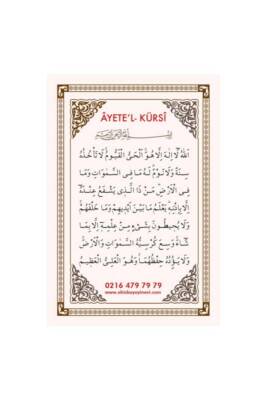 ÂYETE'L- KÜRSÎ
بِسْمِ اللّٰهِ الرَّحْمٰنِ الرَّحِيمِ
اَللّٰهُ لَٓا اِلٰهَ اِلَّا هُوَۚ اَلْحَيُّ الْقَيُّومُۚ لَا تَأْخُذُهُ
سِنَةٌ وَلَا نَوْمٌۜ لَهُ مَا فِي السَّمٰوَاتِ وَمَا
فِي الْاَرْضِۜ مَنْ ذَا الَّذ۪ي يَشْفَعُ عِنْدَهُٓ
اِلَّا بِاِذْنِه۪ۜ يَعْلَمُ مَا بَيْنَ اَيْد۪يهِمْ وَمَا خَلْفَهُمْۚ
وَلَا يُح۪يطُونَ بِشَيْءٍ مِنْ عِلْمِه۪ٓ اِلَّا بِمَا
شَٓاءَۚ وَسِعَ كُرْسِيُّهُ السَّمٰوَاتِ وَالْاَرْضَۚ
وَلَا يَؤُ۫دُهُ حِفْظُهُمَاۚ وَهُوَ الْعَلِيُّ الْعَظ۪يمُ
0216 479 79 79